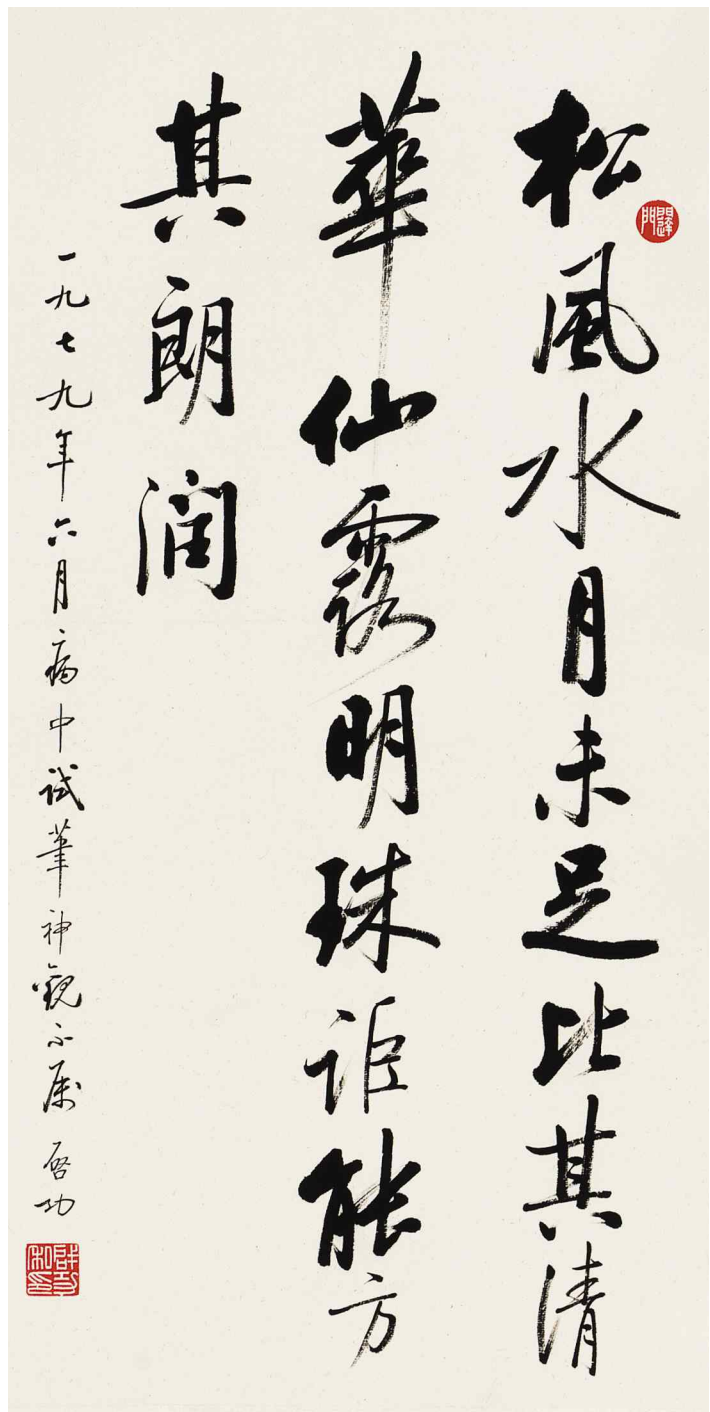 松風水月未足比其清
華仙露明珠詎能方
其朗潤
一九七九年六月病中試筆神觀不屬 啓功